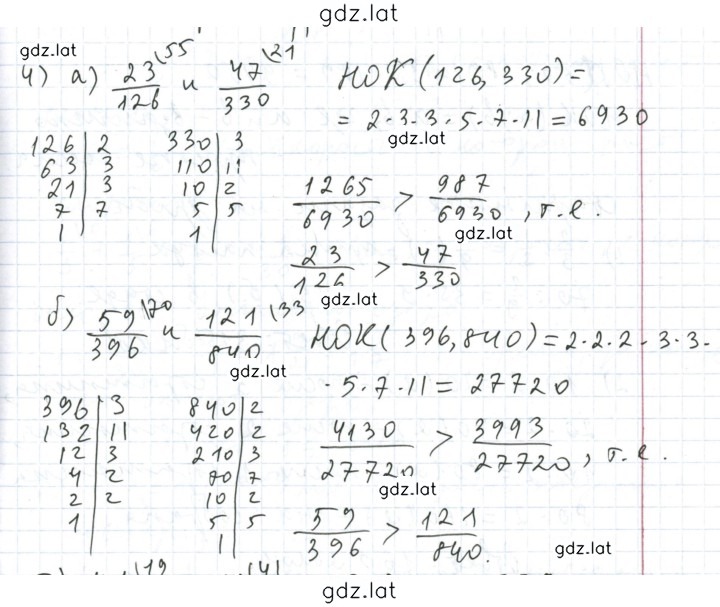 gdz.lat
gdz.lat
4) а) 23/126 \55 и 47/330 \21 НОК (126, 330) =
= 2·3·3·5·7·11 = 6930
gdz.lat
126 | 2 330 | 3
63 | 3 110 | 11
21 | 3 10 | 2
7 | 7 5 | 5
1 | 1 |
1265/6930 > 987/6930, т.е.
gdz.lat
23/126 > 47/330
gdz.lat
б) 59/396 \70 и 121/840 \33 НОК (396, 840) = 2·2·2·3·3·
gdz.lat
·5·7·11 = 27720
396 | 3 840 | 2
132 | 11 420 | 2
12 | 3 210 | 3
4 | 2 70 | 7
2 | 2 10 | 2
1 | 5 | 5
1 |
4130/27720 > 3993/27720, т.е.
gdz.lat
59/396 > 121/840.
gdz.lat
gdz.lat